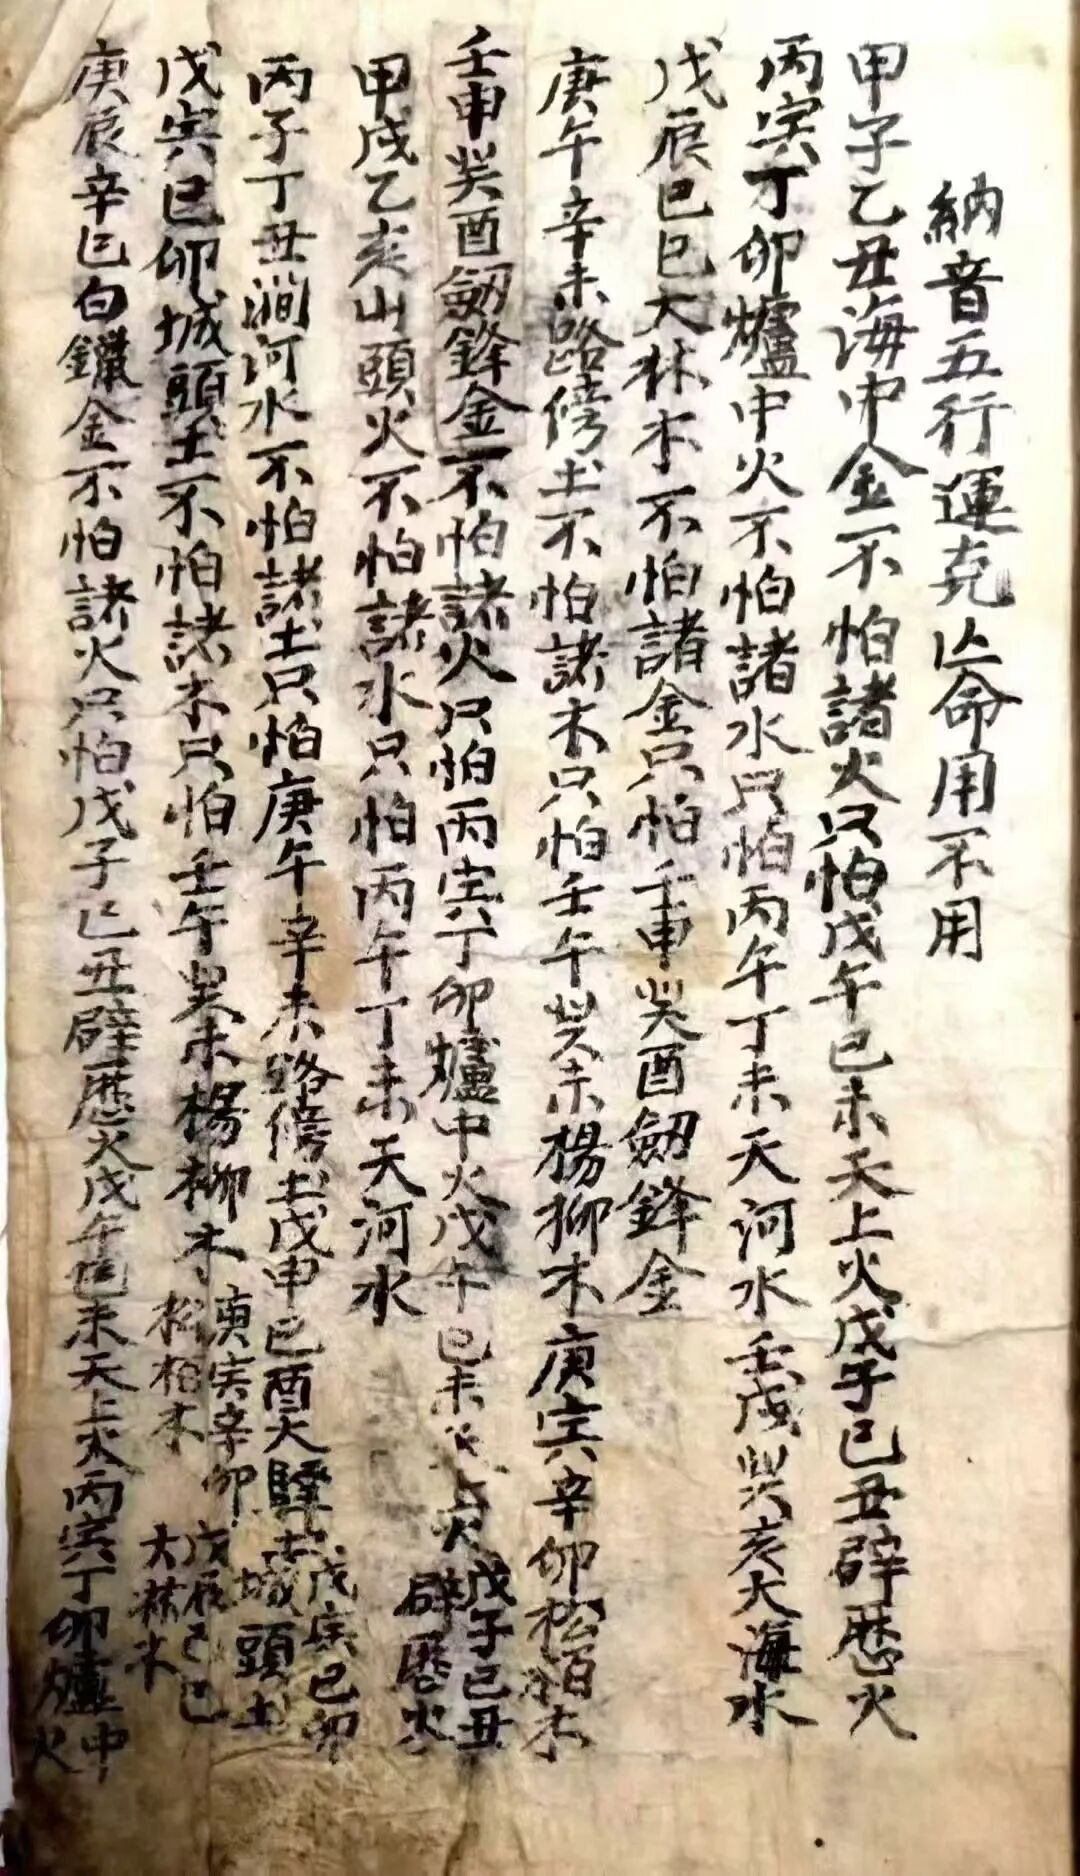 納音五行運克亡命用不用
甲子乙丑海中金不怕諸火只怕戊午己未天上火戊子己丑辟歷火
丙寅丁卯爐中火不怕諸水只怕丙午丁未天河水壬戌癸亥大海水
戊辰己巳大林木不怕諸金只怕壬申癸酉劒鋒金
庚午辛未路傍土不怕諸木只怕壬午癸未楊柳木庚寅辛卯松栢木
壬申癸酉劒鋒金不怕諸火只怕丙寅丁卯爐中火戊午己未天上火戊子己丑辟歷火
甲戌乙亥山頭火不怕諸水只怕丙午丁未天河水
丙子丁丑澗河水不怕諸土只怕庚午辛未路傍土戊申己酉大驛土戊寅己卯城頭土
戊寅己卯城頭土不怕諸木只怕壬午癸未楊柳木庚寅辛卯松柏木戊辰己巳大林木
庚辰辛巳白鑞金不怕諸火只怕戊子己丑辟歷火戊午己未天上火丙寅丁卯爐中火